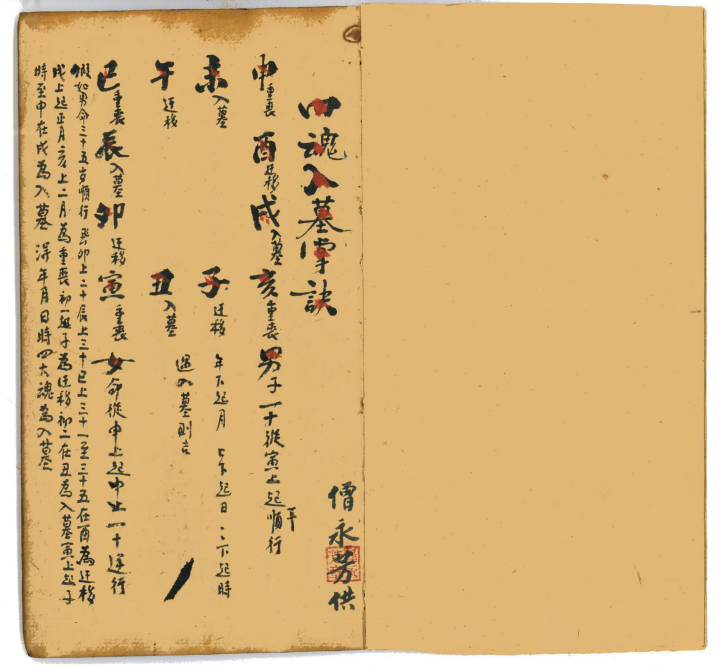 僧永芳供
四魂入墓掌訣
申重喪 酉迁移 戌入墓 亥重喪 男子一十從寅上起順行 年
未入墓 子迁移 年下起月 月下起日 日下起時
午迁移 丑入墓 遇入墓則吉
巳重喪 辰入墓 卯迁移 寅重喪 女命從申上起申上一十逆行
假如男命三十五岁順行 癸卯上二十辰上三十巳上三十一至三十五在酉為迁移
戌上起正月亥上二月為重喪初一起子為迁移初二在丑為入墓寅上起子
時至申在戌為入墓 淂年月日時四大魂為入墓